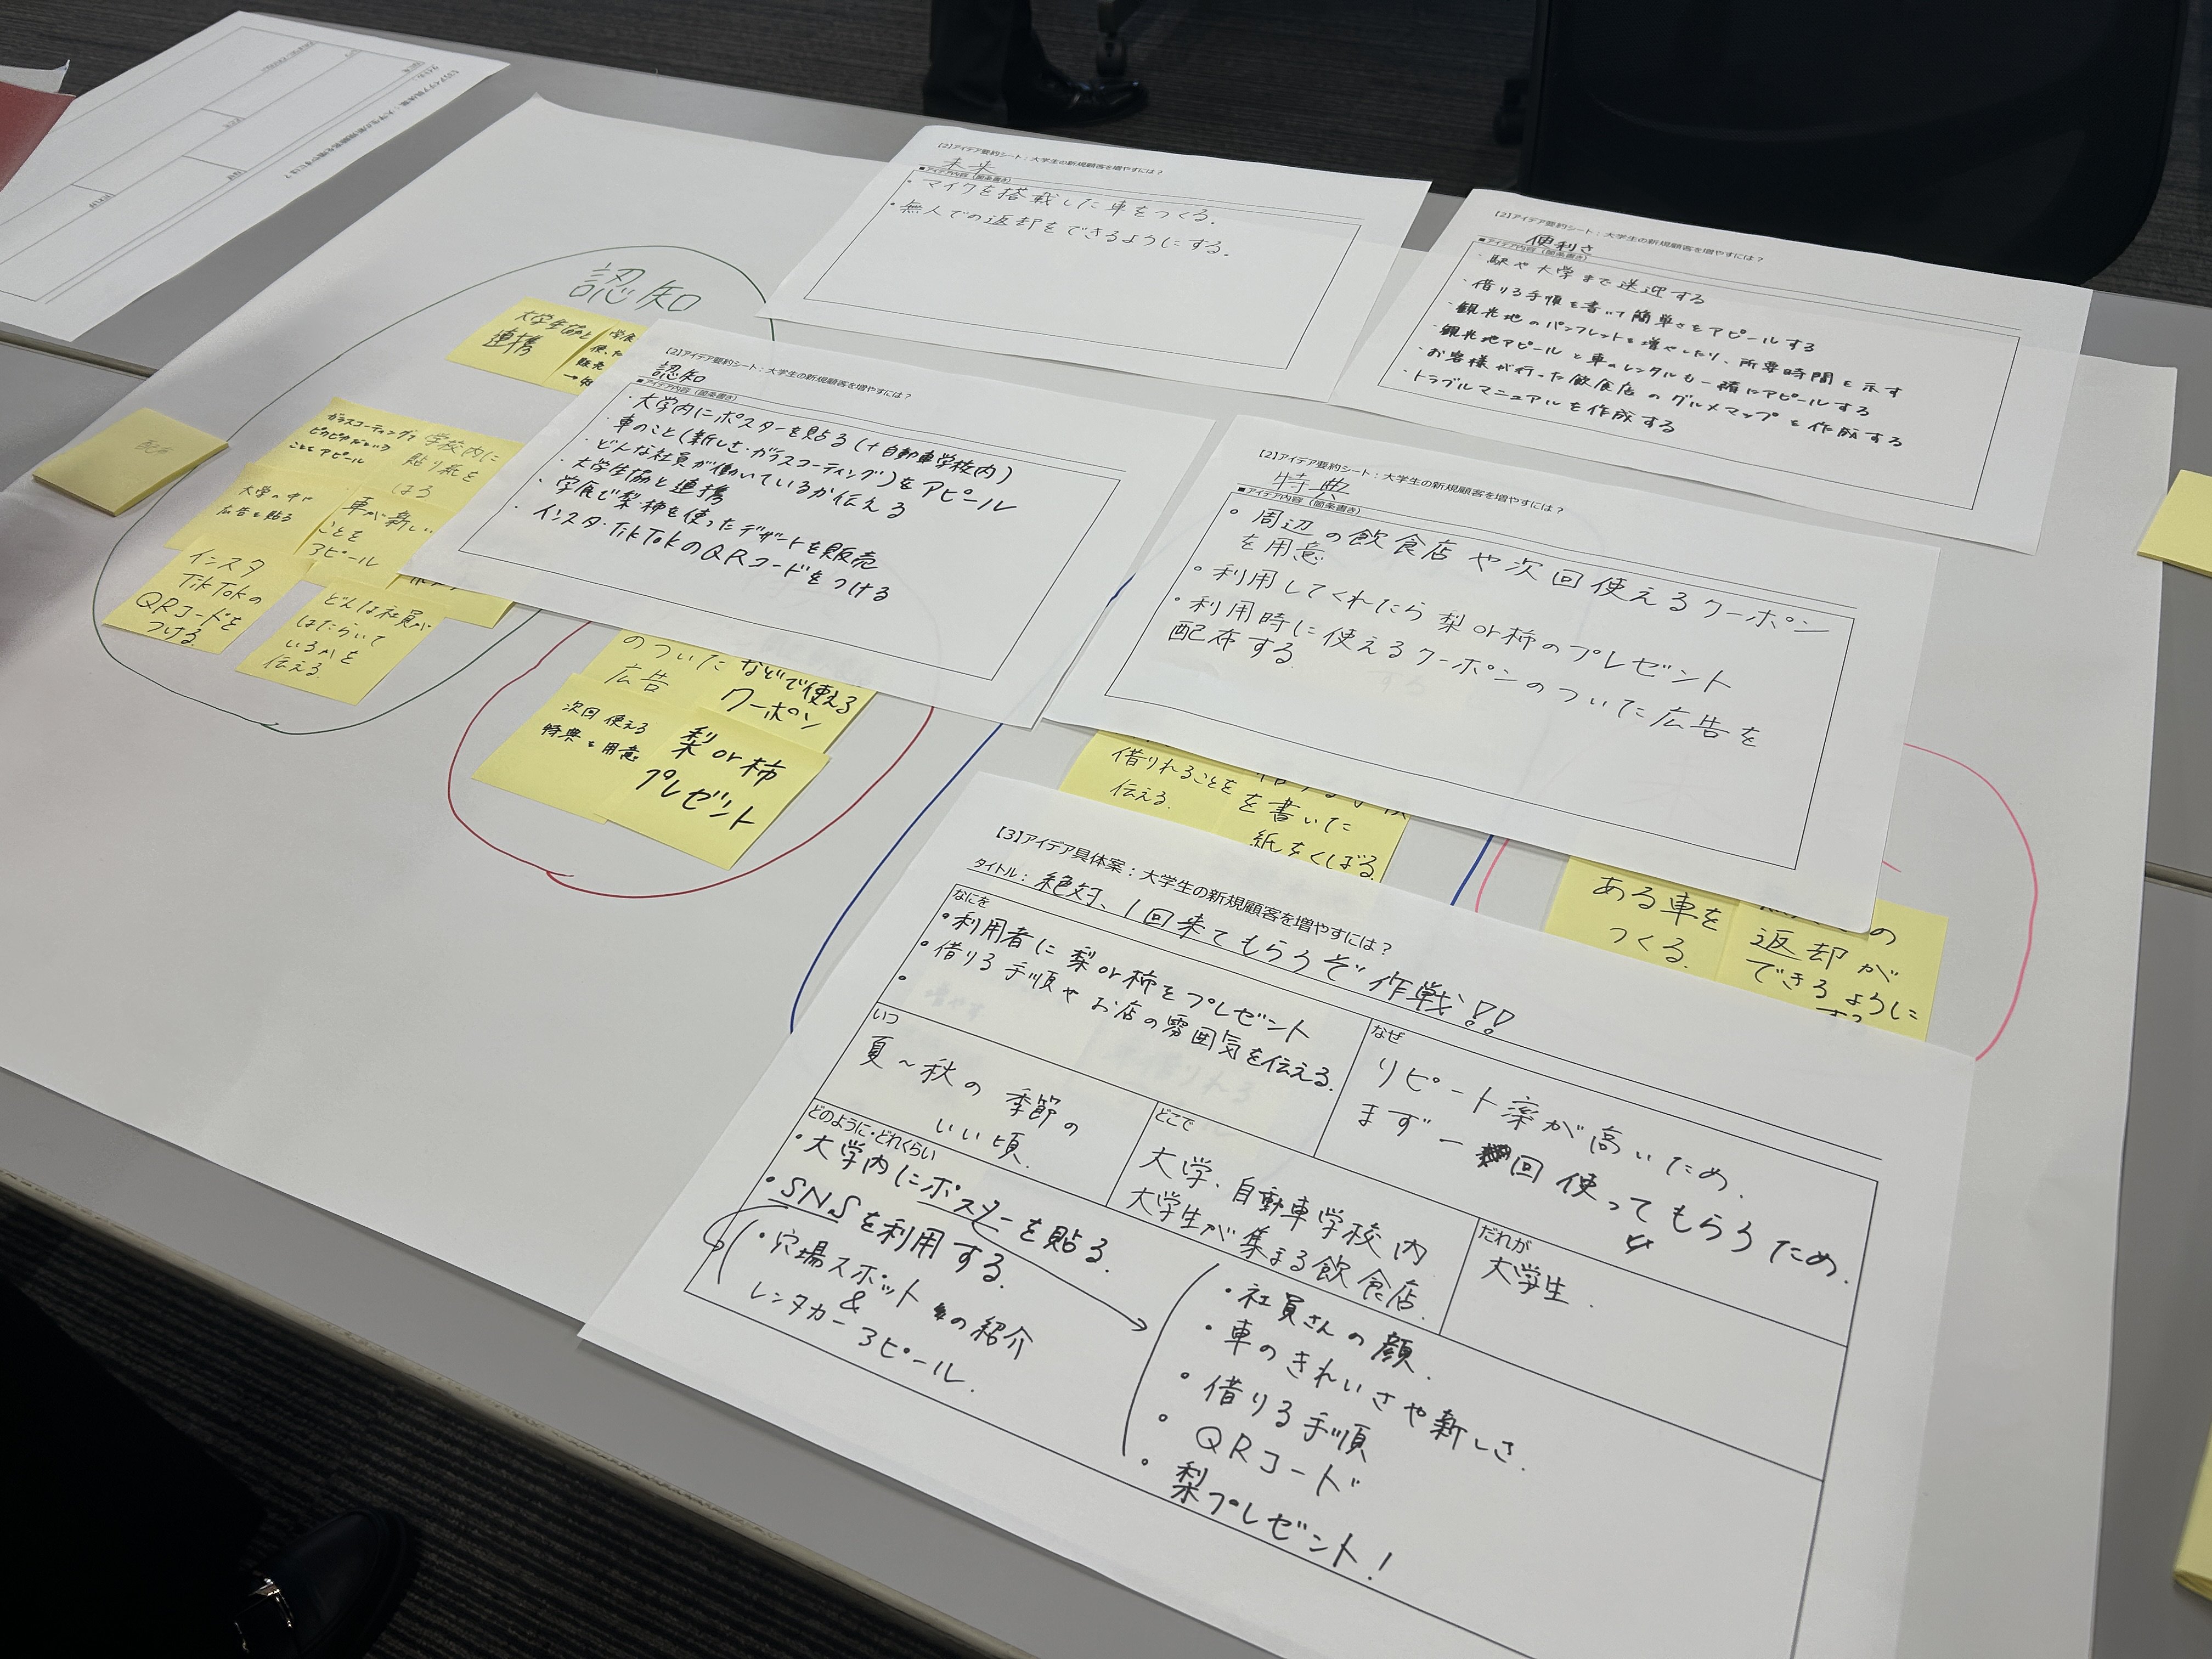 【2】アイデア要約シート：大学生の新規顧客を増やすには？
未来
■アイデア内容（箇条書き）
・マイクを搭載した車をつくる.
・無人での返却をできるようにする.
【2】アイデア要約シート：大学生の新規顧客を増やすには？
便利さ
■アイデア内容（箇条書き）
・駅や大学まで送迎する
・借りる手順を書いて簡単さをアピールする
・観光地のパンフレットを増やしたり、所要時間を示す
・観光地アピールと車のレンタルも一緒にアピールする
・お客様が行った飲食店のグルメマップを作成する
・トラブルマニュアルを作成する
認知
大学生協と
連携
【2】アイデア要約シート：大学生の新規顧客を増やすには？
認知
■アイデア内容（箇条書き）
・大学内にポスターを貼る(+自動車学校内)
・車のこと(新しさ・ガラスコーティング)をアピール
・どんな社員が働いているか伝える
・大学生協と連携
・学食で梨・柿を使ったデザートを販売
・インスタ・TikTokのQRコードをつける
ガラスコーティングで
ピカピカだという
ことをアピール
学校内に
貼り紙を
はる
大学の中に
広告を貼る
車が新しい
ことを
アピール
インスタ
TikTokの
QRコードを
つける
どんな社員が
はたらいて
いるかを
伝える
【2】アイデア要約シート：大学生の新規顧客を増やすには？
特典
■アイデア内容（箇条書き）
・周辺の飲食店や次回使えるクーポン
を用意
・利用してくれたら梨or柿のプレゼント
・利用時に使えるクーポンのついた広告を
配布する
のついた
広告
などで使える
クーポン
次回使える
特典を用意
梨or柿
プレゼント
借りれることを
伝える.
を書いた
紙をくばる
ある車を
つくる.
の
返却が
できるように
【3】アイデア具体案：大学生の新規顧客を増やすには？
タイトル：絶対、1回来てもらうぞ作戦!!
なにを
・利用者に梨or柿をプレゼント
・借りる手順やお店の雰囲気を伝える.
・
なぜ
リピート率が高いため.
まず一回使ってもらうため.
いつ
夏～秋の季節の
いい頃.
どこで
大学、自動車学校内
大学生が集まる飲食店.
だれが
大学生.
どのように・どれくらい
・大学内にポスターを貼る.
・SNSを利用する.
・穴場スポットの紹介
&
レンタカーアピール.
・社員さんの顔.
・車のきれいさや新しさ.
・借りる手順
・QRコード
・梨プレゼント!